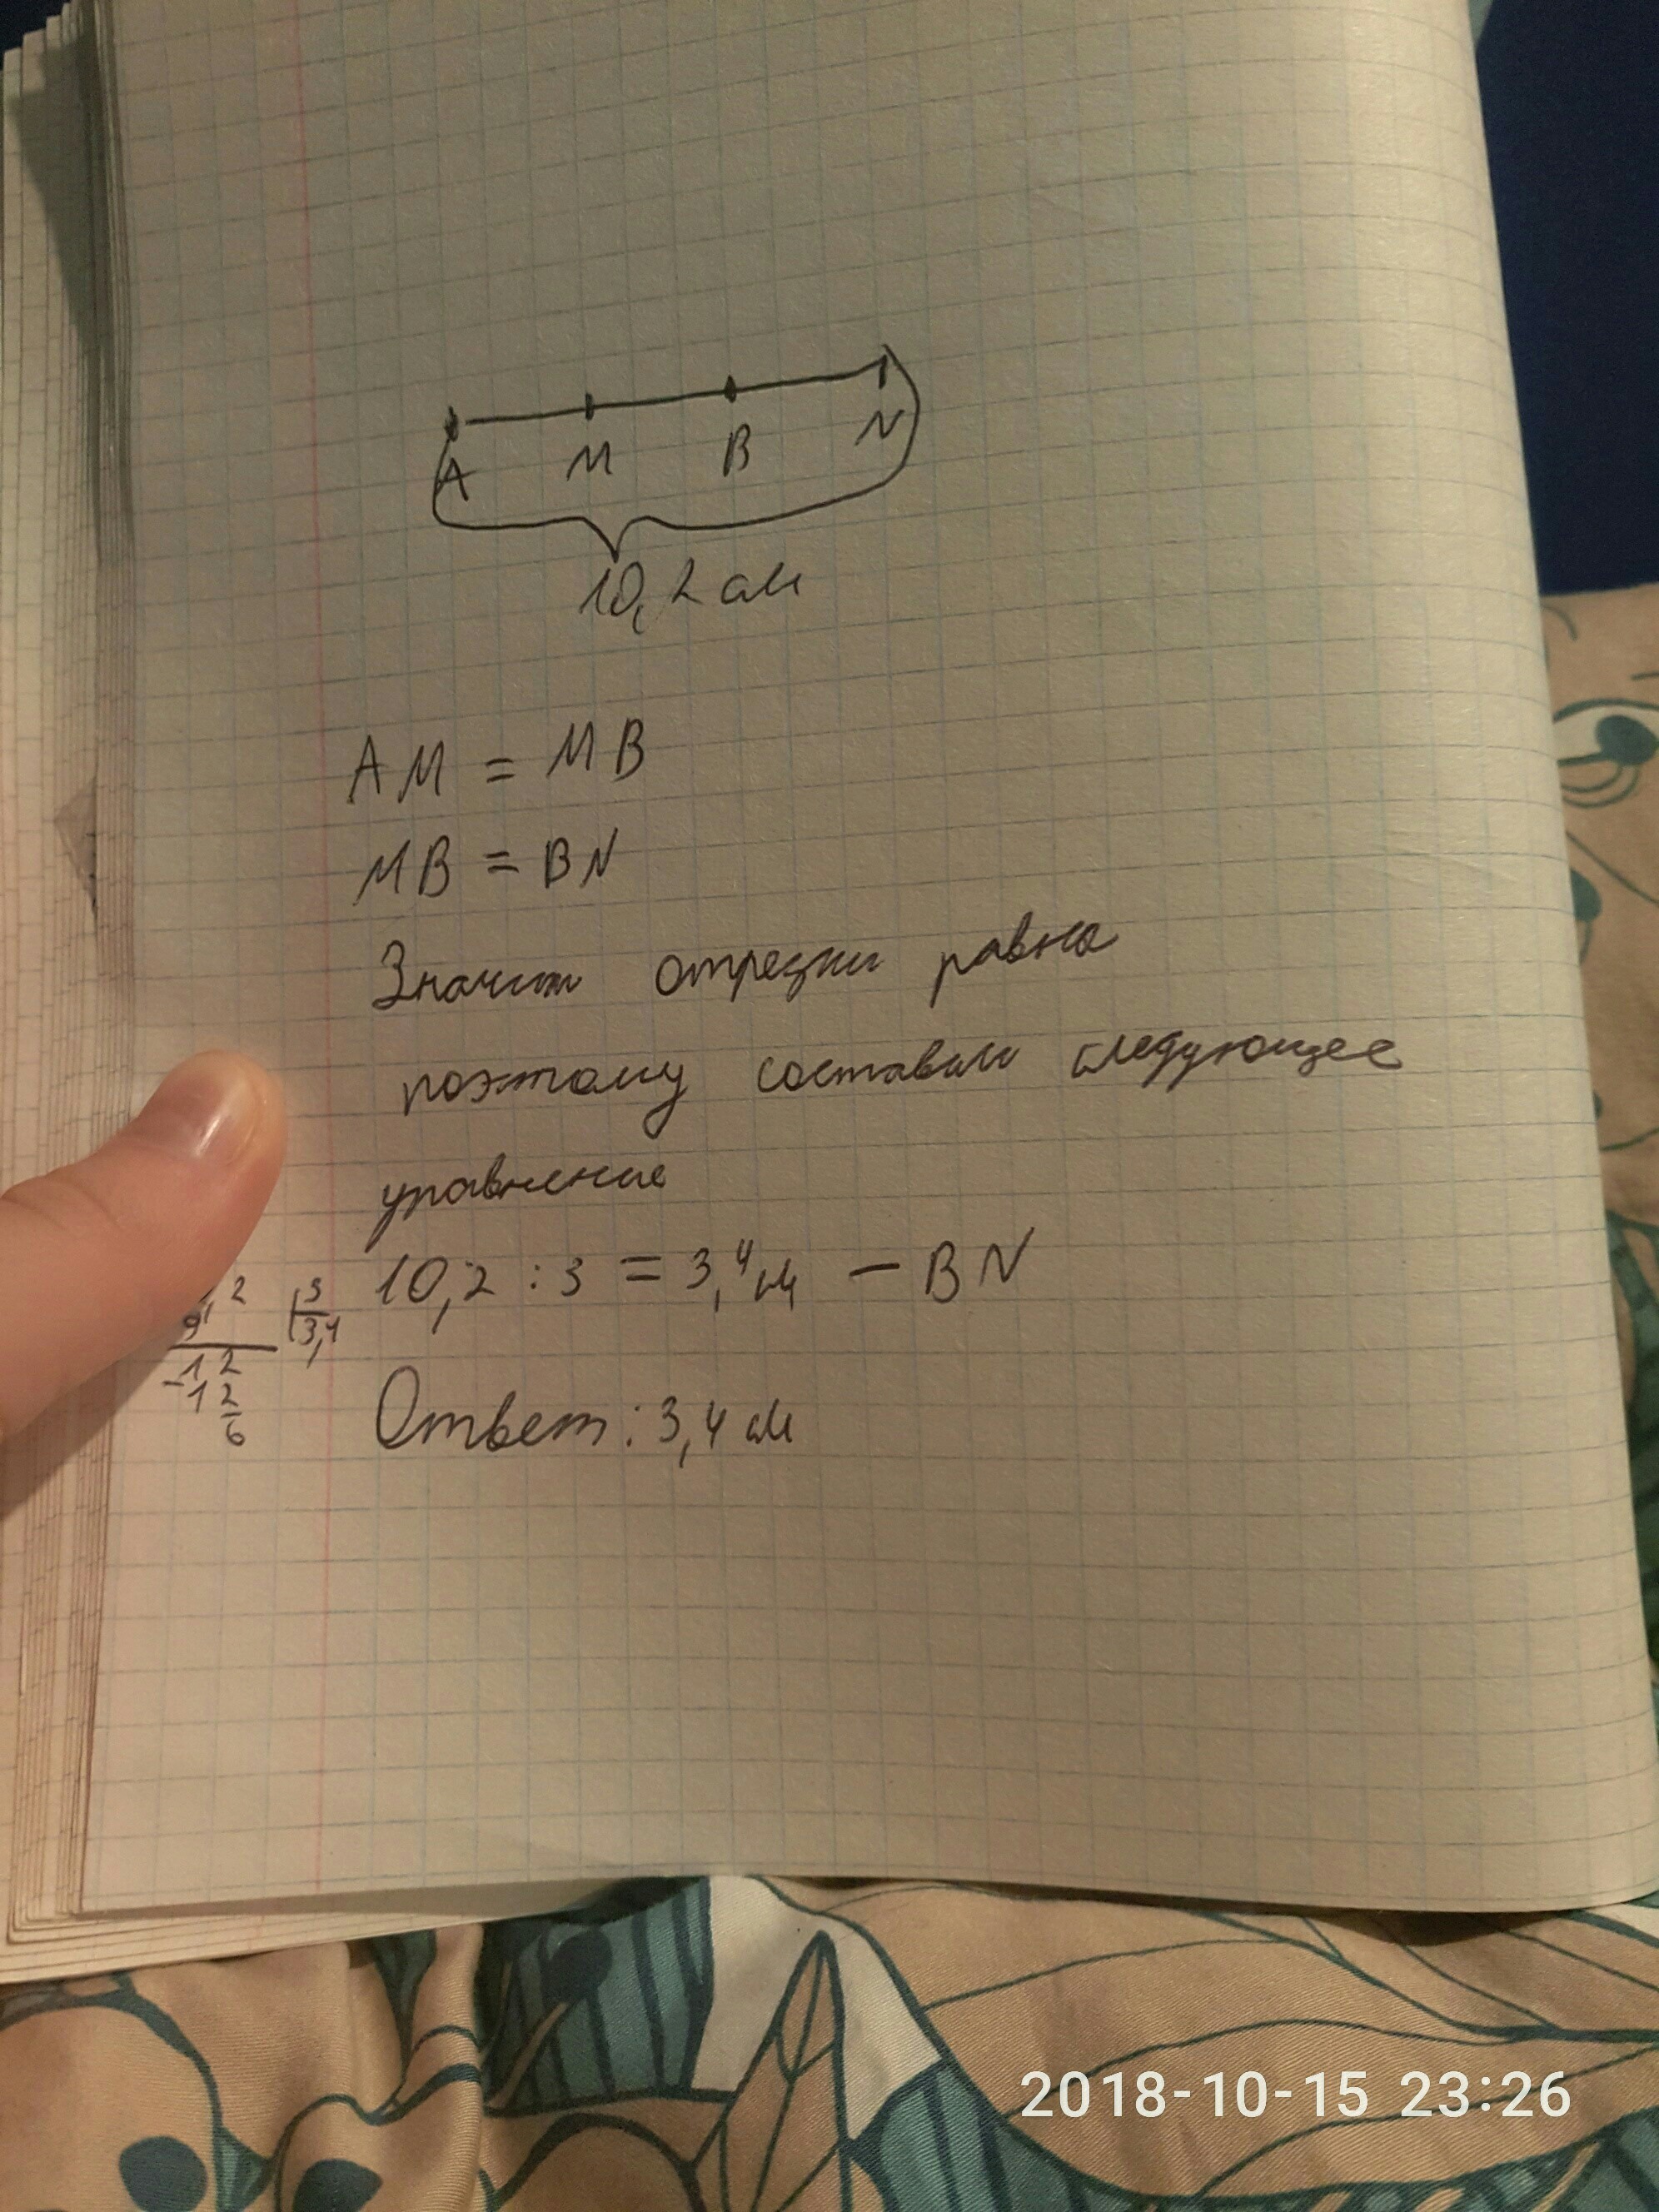 A M B N
10,2 см
AM = MB
MB = BN
Значит отрезки равны
поэтому составим следующее
уравнение
10,2 : 3 = 3,4 см - BN
,2 3
9 3,4
-12
12
6
Ответ: 3,4 см
2018-10-15 23:26